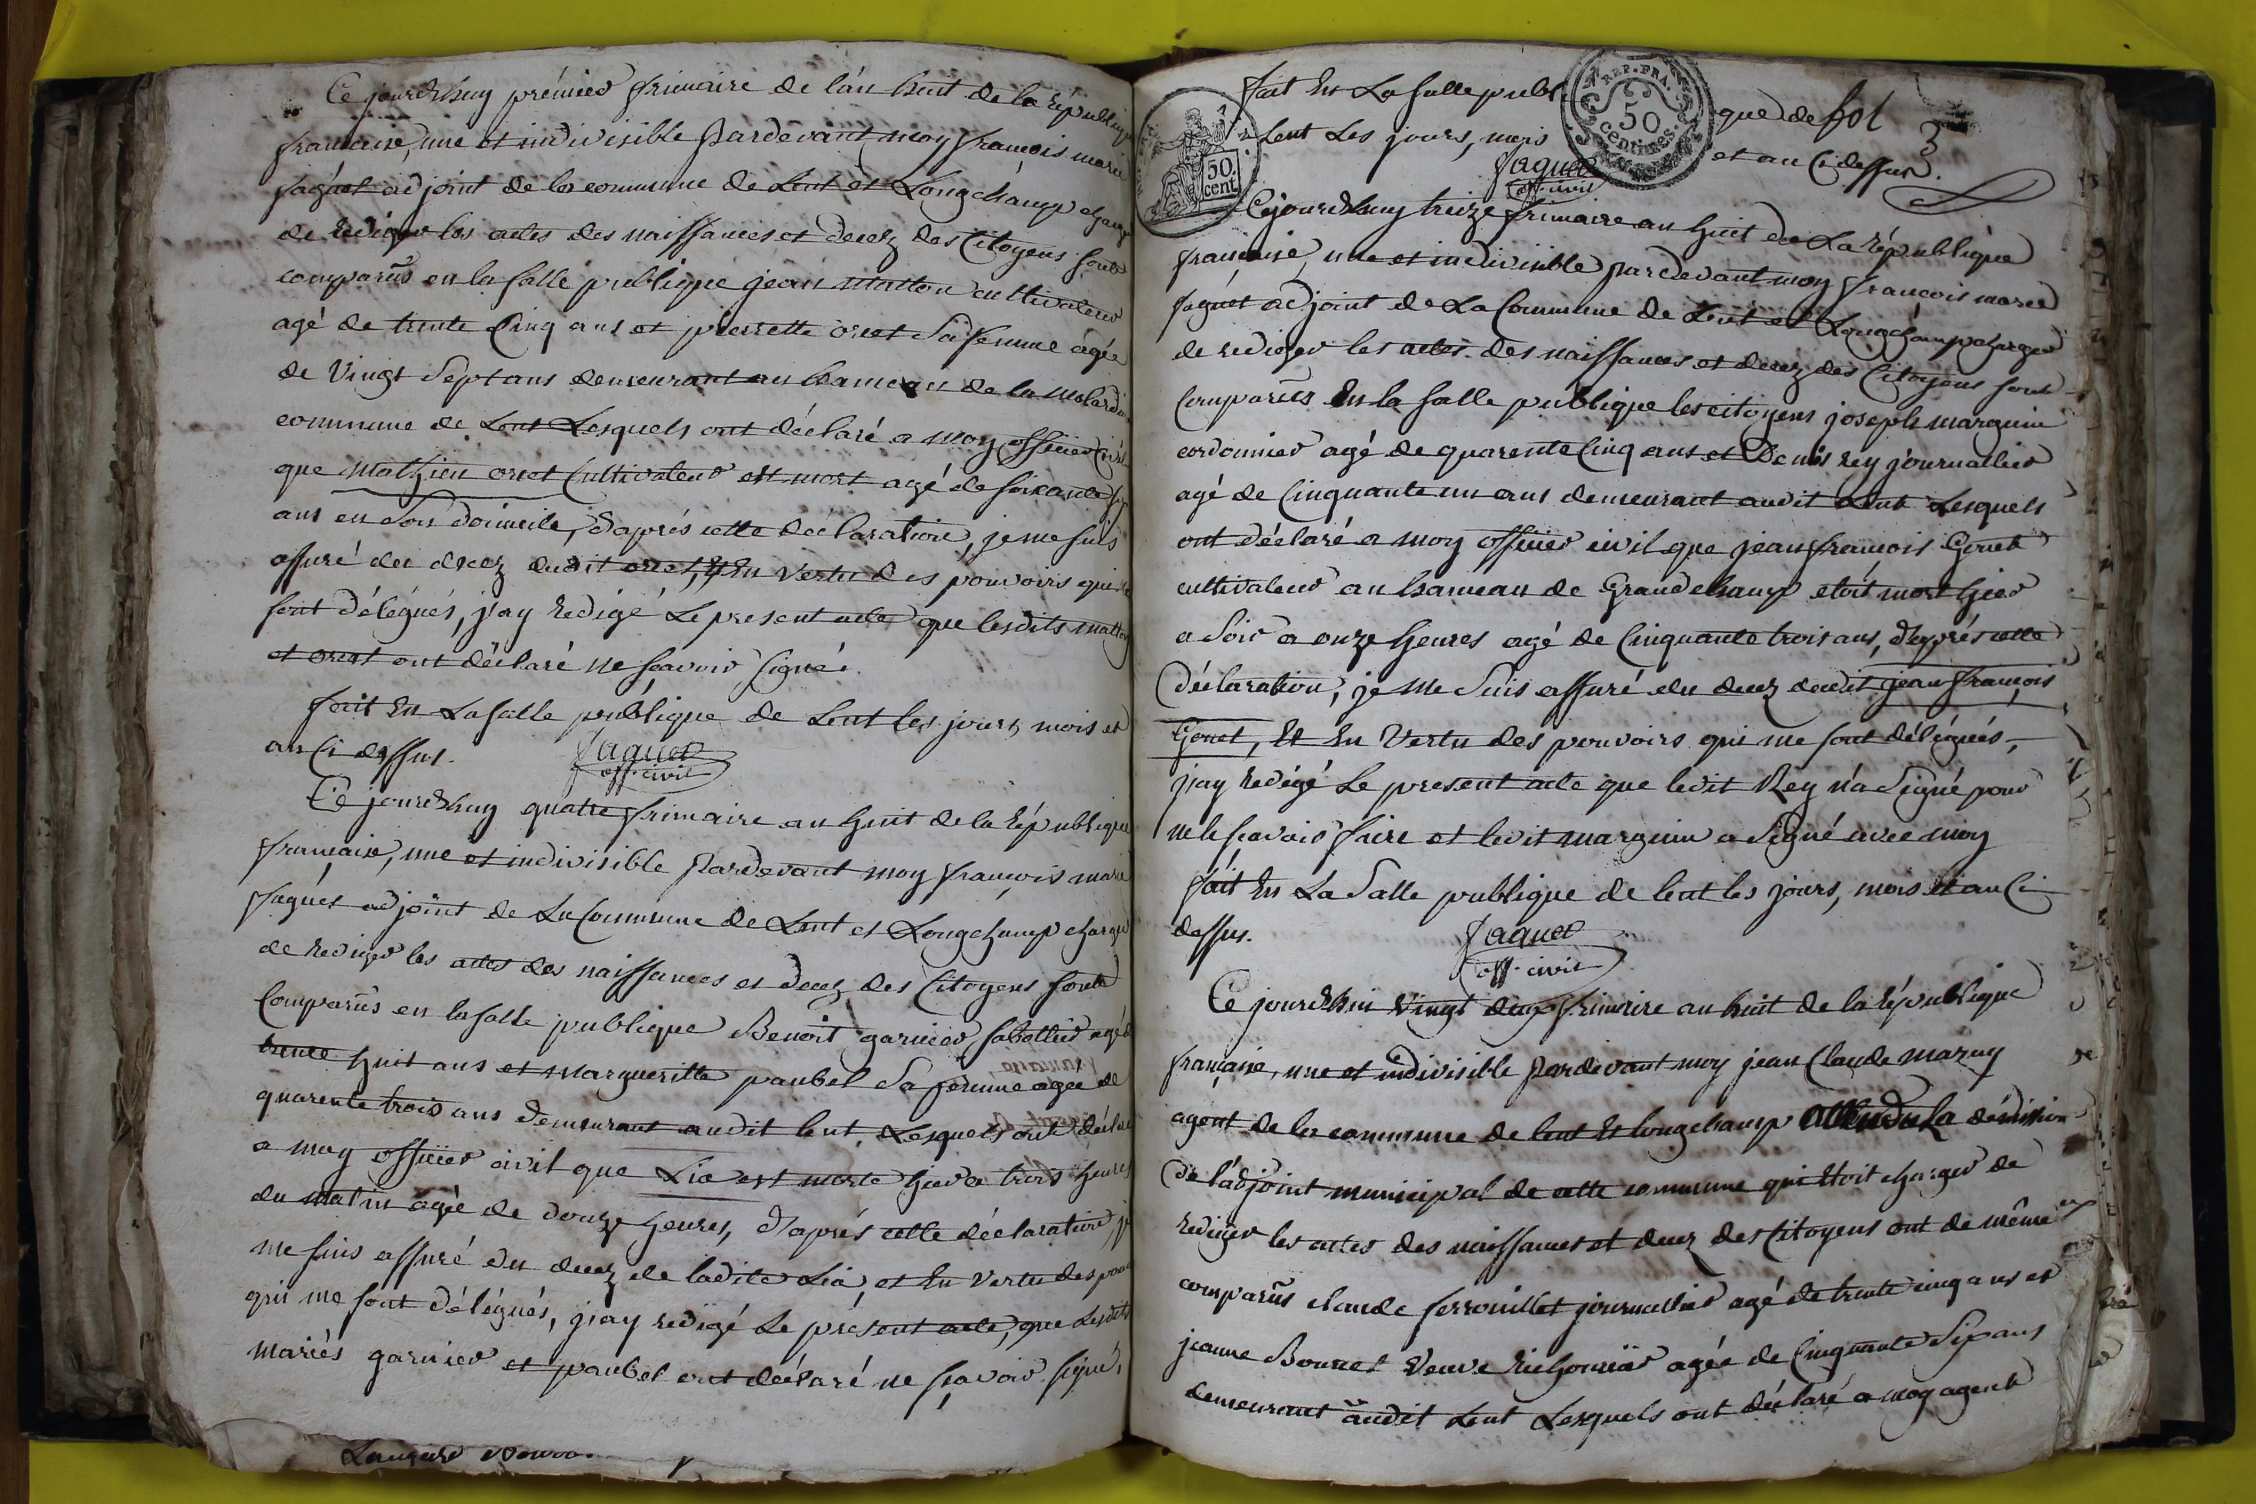 Ce jourdhuy prémier frimaire de l'an huit de la républiq
francaise, une et indivisible pardevant moy françois marie
faguet adjoint de la commune de Lent et Longchamp chargé
de rediger les actes des naissances et decez des Citoyens sont
comparus en la salle publique jean matton cultivateur
agé de trente Cinq ans et pierrette oret Sa femme agée
de Vingt Sept ans demeurant au hameau de la molard
commune de Lent Lesquels ont déclaré a moy officier Civil
que mathieu oret Cultivateur est mort agé de soixante
ans en Son domicile, d'aprés cette déclaration, je me suis
assuré du decez dudit oret, Et En vertu des pouvoirs qui
sont délégués, j'ay redigé Le present acte que lesdits matton
et oret ont déclaré ne sçavoir signé.
fait En La salle publique de Lent les jours, mois et
an Ci dessus.
faguet
off. civil
Ce jourdhuy quatre frimaire an huit de la République
francaise, une et indivisible pardevant moy françois marie
faguet adjoint de La Commune de Lent et Longchamp chargé
de rediger les actes des naissances et decez des Citoyens sont
Comparus en la salle publique Benoit garnier sabottier agé
trente huit ans et marguerite paubel Sa femme agée de
quarente trois ans demeurant audit lent, Lesquels ont déclaré
a moy officier civil que Lia est morte hier a trois heures
du matin agée de douze heures, d'aprés cette déclaration, je
me suis assuré du decez de ladite Lia, et En vertu des pouv
qui me sont délégués, j'ay redigé Le présent acte, que Lesdits
mariés garnier et paubel ont déclaré ne sçavoir signé,
fait En La salle publi que de fol 3
Lent Les jours, mois et an Ci dessus.
faguet
off. civil
REP. FRA.
50
centimes
50
cent.
Cejourdhuy treize frimaire an huit de La République
francaise, une et indivisible pardevant moy françois marie
faguet adjoint de La Commune de Lent et Longchamp charger
de rediger les actes des naissances et decez des Citoyens sont
Comparus En la salle publique les citoyens joseph marguin
cordonnier agé de quarente Cinq ans et Denis rey journallier
agé de Cinquante un ans demeurant audit Lent Lesquels
ont déclaré a moy officier civil que jean françois Gonet
cultivateur au hameau de Grandchamp etoit mort hier
a Soir a onze heures agé de Cinquante trois ans, d'aprés cette
déclaration, je me Suis assuré du decez dudit jean françois
Gonet, Et En Vertu des pouvoirs qui me sont délégués,
j'ay redigé Le present acte que ledit Rey n'a Signé pour
ne le sçavoir faire et ledit marguin a Signé avec moy
fait En La Salle publique de lent les jours, mois et an Ci
dessus.
faguet
off. civil
Ce jourdhui Vingt deux frimaire an huit de la République
française, une et indivisible pardevant moy jean Claude maruy
agent de la commune de lent Et longchamp attendu La démission
de l'adjoint municipal de cette commune qui Etoit charger de
rediger les actes des naissances et decez des Citoyens ont de même
comparus claude ferrouillet journallier agé de trente cinq ans et
jeanne Bonnet veuve agée de Cinquante Six ans
demeurant audit Lent Lesquels ont déclaré a moy agent